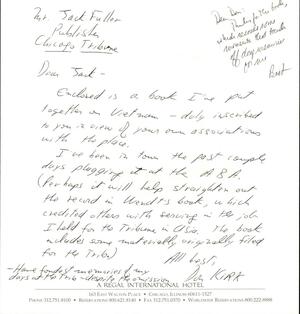 Mr. Jack Fuller
Publisher
Chicago Tribune
Dear Jack -
Enclosed is a book I've put
together on Vietnam - duly inscribed
to you in view of your own associations
with the place.
I've been in town the past couple
days plugging it at the ABA.
(Perhaps it will help straighten out
the record in Wendt's book, which
credited others with serving in the job
I held for the Tribune in Asia. The book
includes some material originally filed
for the Trib.)
All best,
Don Kirk
- Have fondest memories of my
days at the Trib - despite the omission
A REGAL INTERNATIONAL HOTEL
163 EAST WALTON PLACE • CHICAGO, ILLINOIS 60611-1527
PHONE 312.751.8100 • RESERVATIONS 800.621.8140 • FAX 312.751.0370 • WORLDWIDE RESERVATIONS 800.222.8888
Dear Don,
Thanks for the book,
which
of
Best